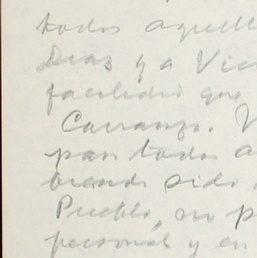 todos aquell
Diaz y a Vic
facilidad que
Carranza. V
pan todos a
biendo sido
Pueblo, no p
personal y en